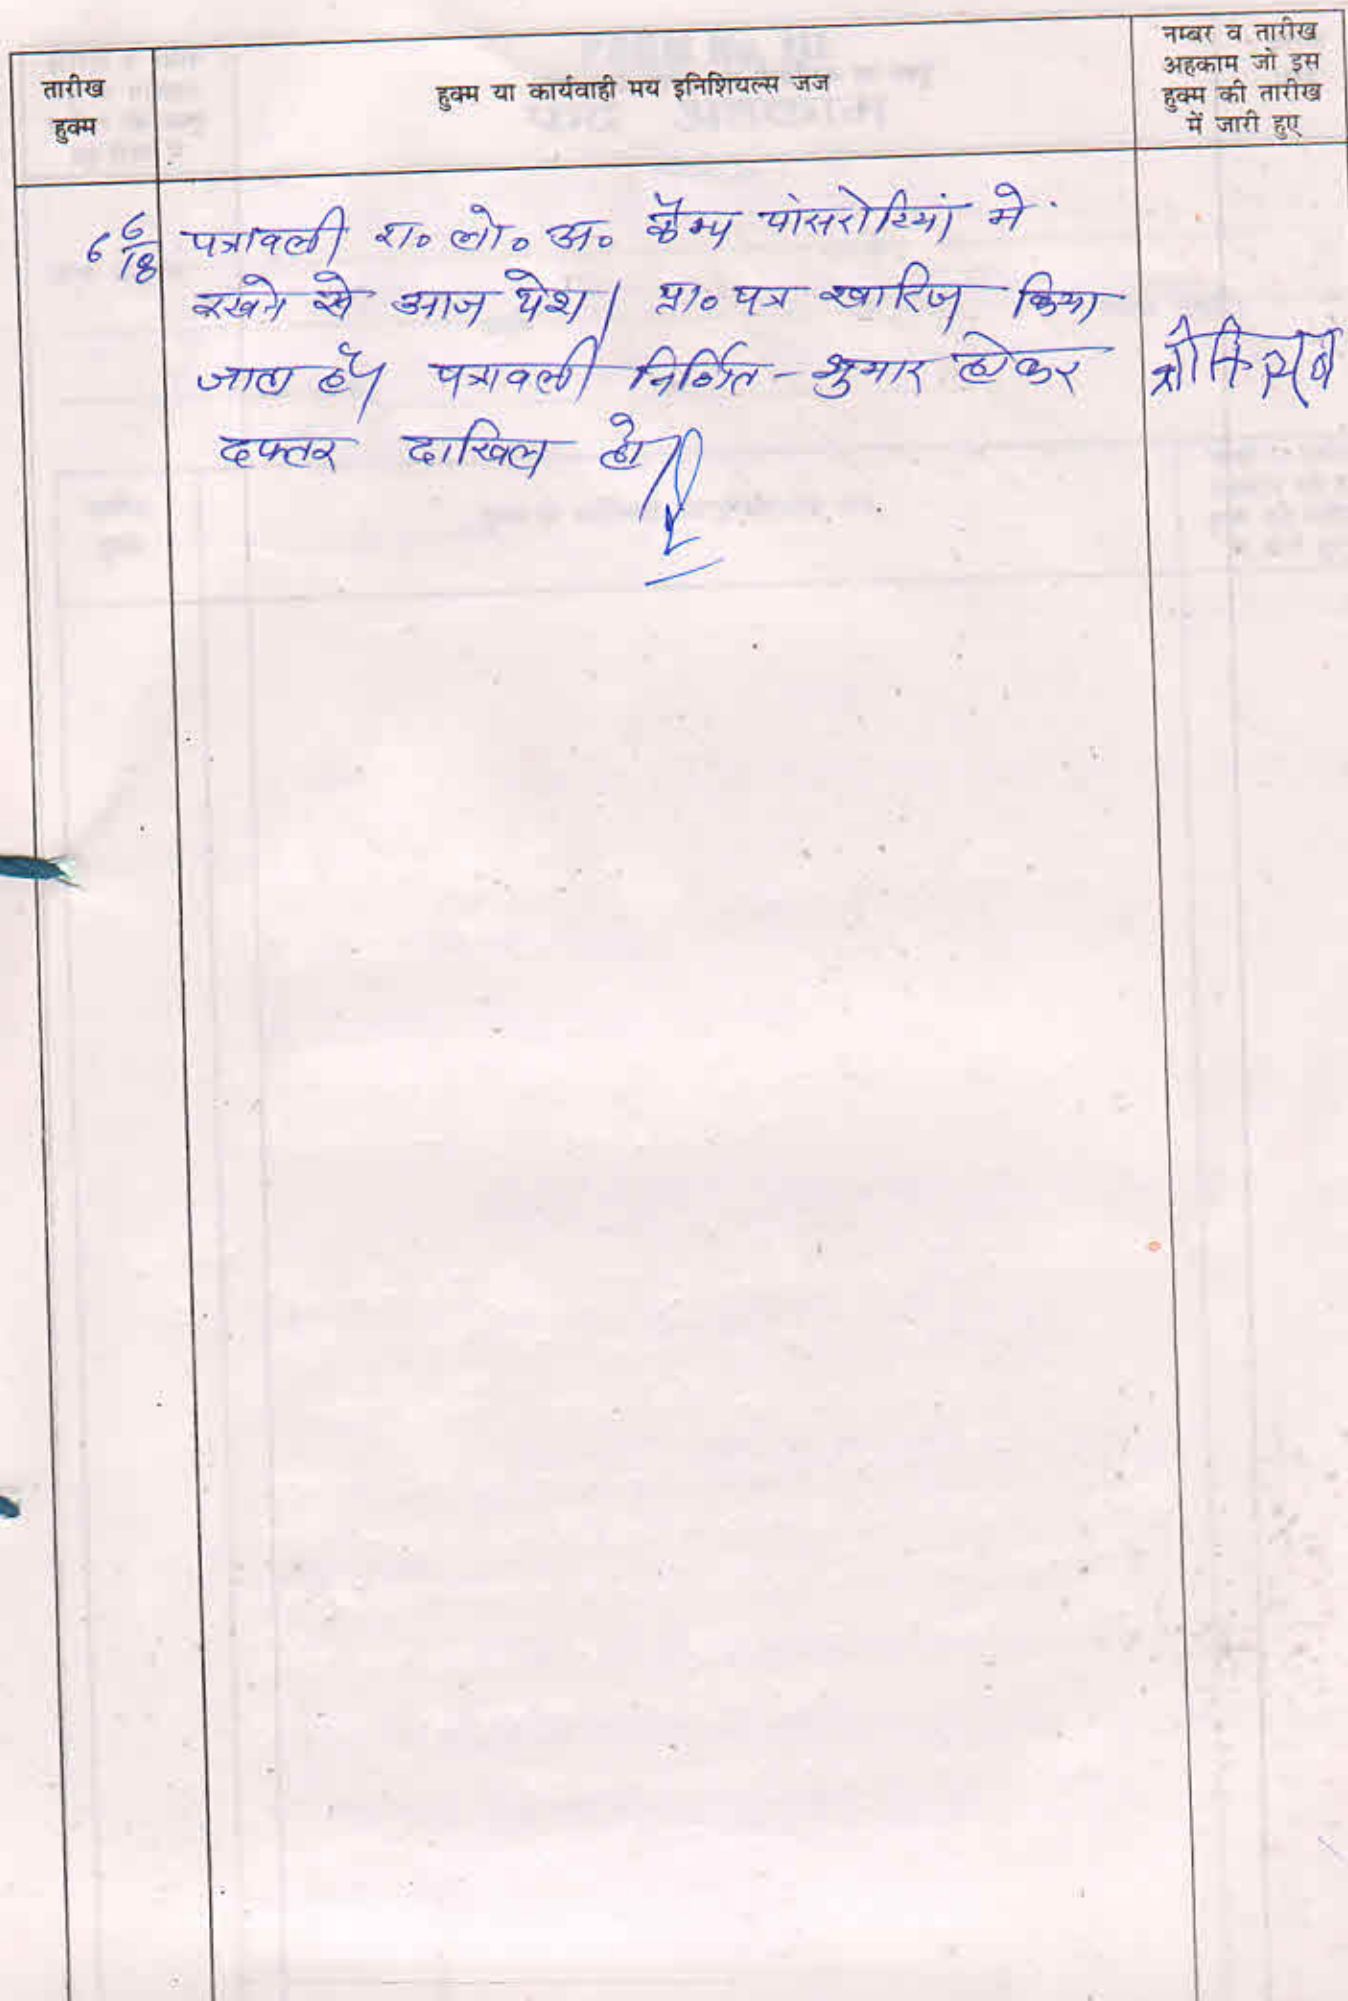 तारीख
हुक्म
हुक्म या कार्यवाही मय इनिशियल्स जज
नम्बर व तारीख
अहकाम जो इस
हुक्म की तारीख
में जारी हुए
6 6/18
पत्रावली रा० लो० अ० कैम्प पांसरोटियां में
रखने से आज पेश। प्रा० पत्र खारिज किया
जाता है। पत्रावली निर्णित-शुमार होकर
दफ्तर दाखिल हो।